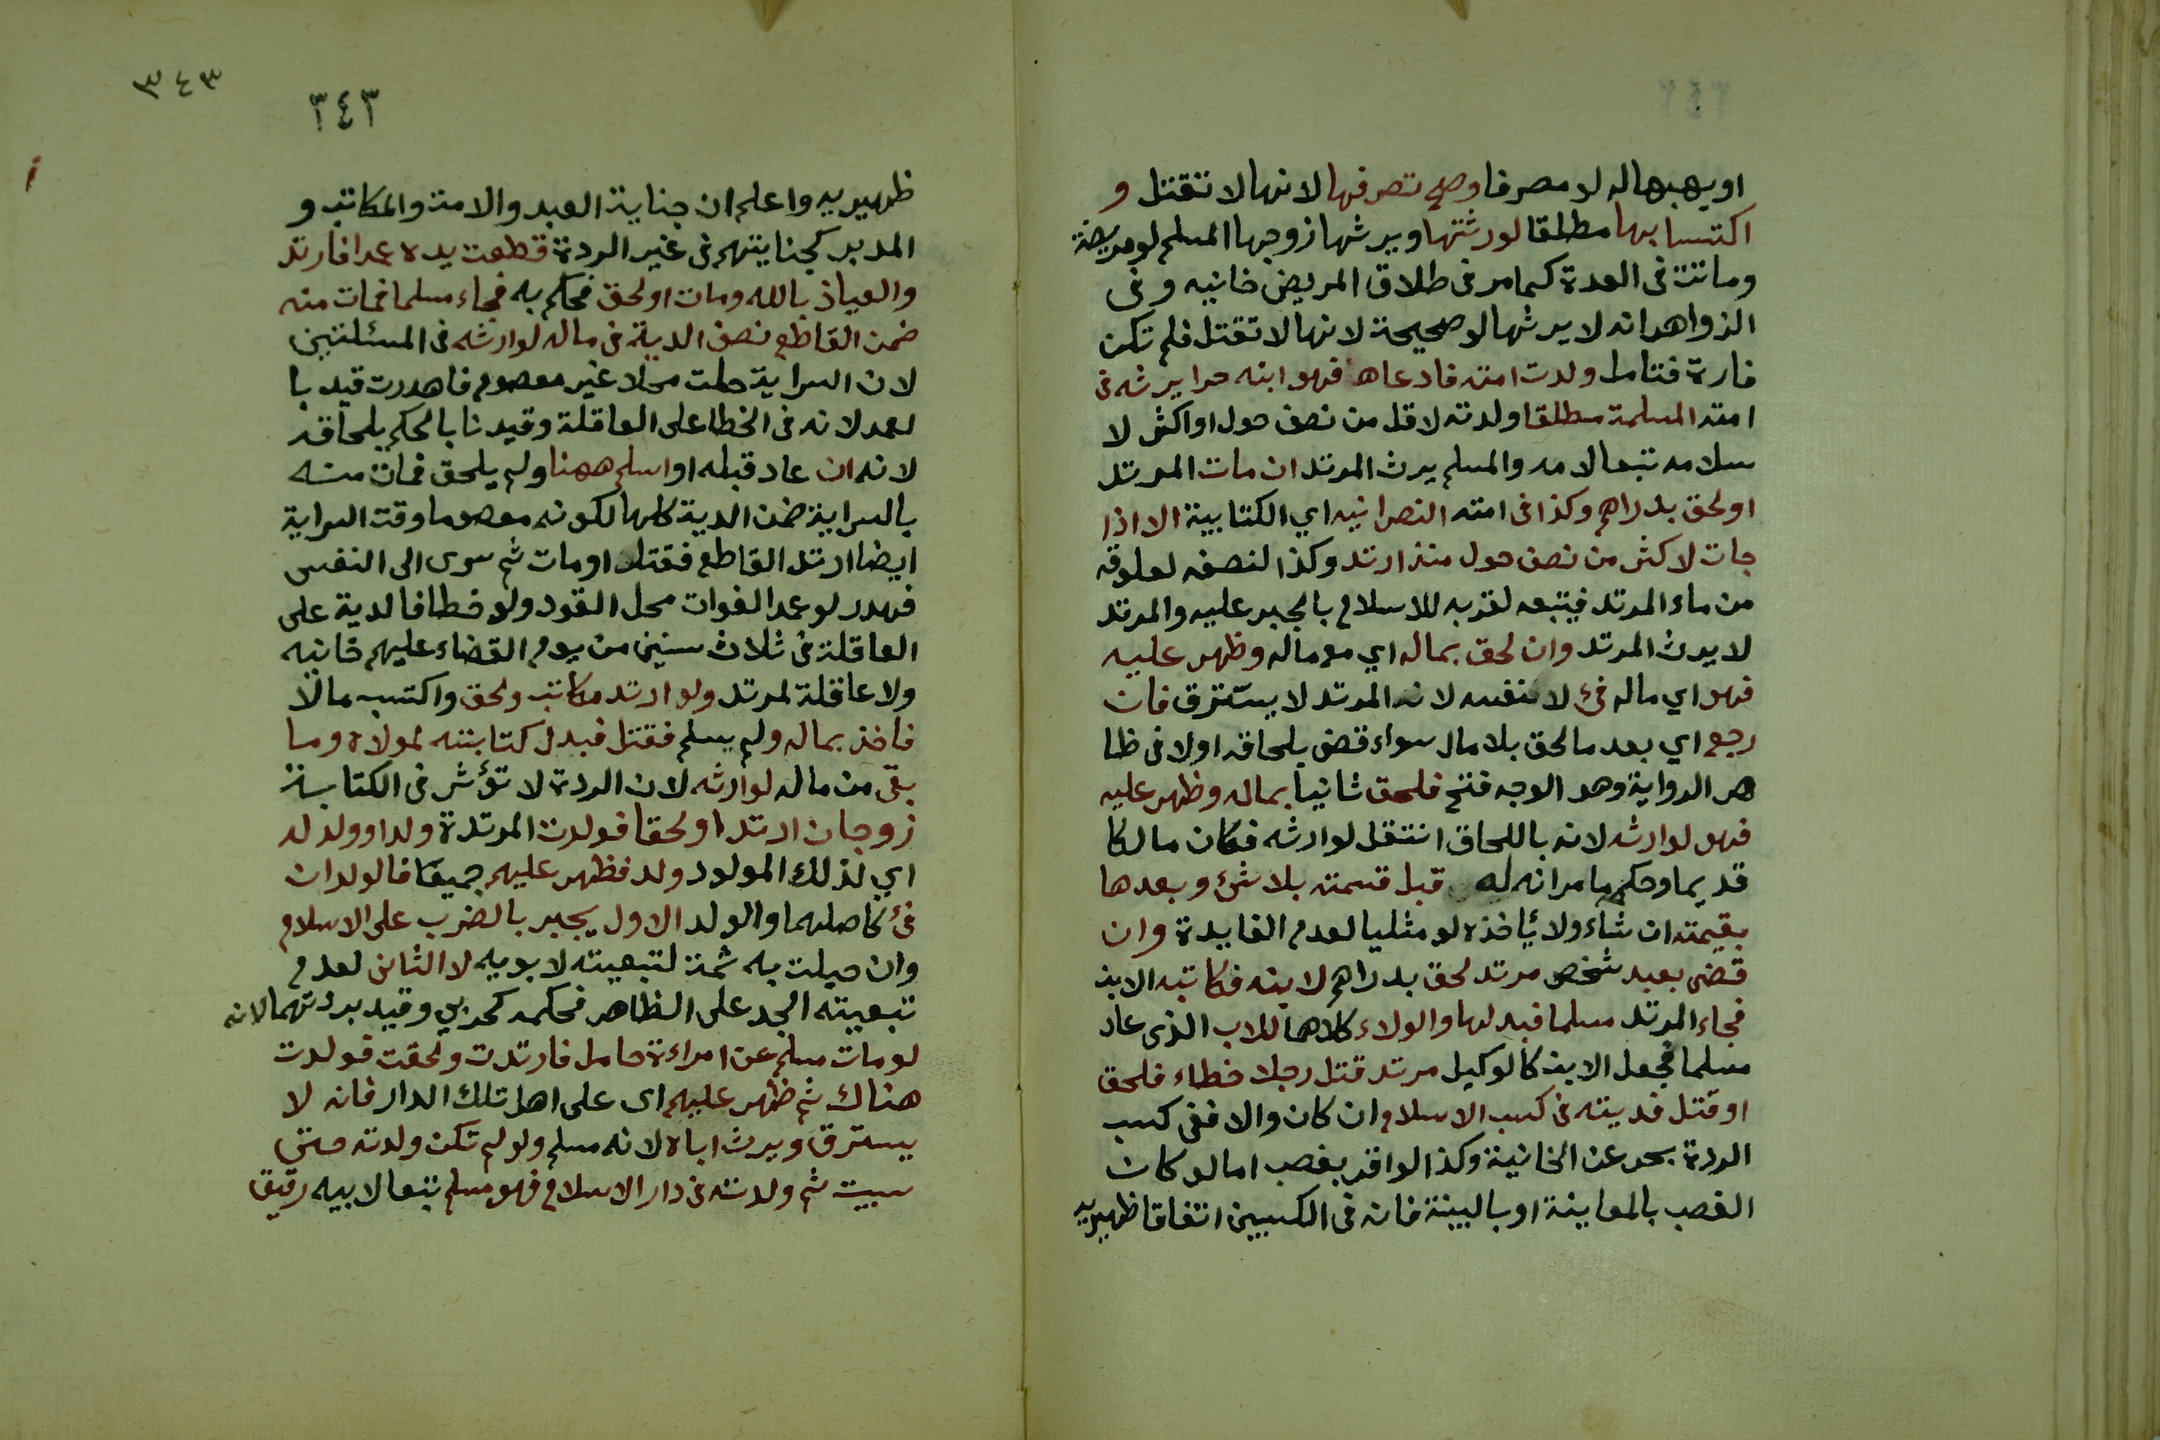 او يهبها له لو مصرفا وصح تصرفها لانها لا تقتل و
اكتسابها مطلقا لورثتها ويرثها زوجها المسلم لو مريضة
وماتت فى العدة كما مر فى طلاق المريض خانيه وفى
الزواهر انه لا يرثها لو صحيحة لانها لا تقتل فلم تكن
فارة فتامل ولدت امته فادعاه فهو ابنه حرا يرثه فى
امته المسلمة مطلقا ولدته لاقل من نصف حول او اكثر لا
سلامه تبعا لامه والمسلم يرث المرتد ان مات المرتد
او لحق بدراهم وكذا فى امته النصرانيه اي الكتابية الا اذا
جات لاكثر من نصف حول منذ ارتد وكذا لنصفه لعلوقه
من ماء المرتد فيتبعه لقربه للاسلام بالجبر عليه والمرتد
لا يرث المرتد وان لحق بماله اي مع ماله وظهر عليه
فهو اي ماله فئ لا نفسه لانه المرتد لا يسترق فان
رجع اي بعد ما لحق بلا مال سواء قضى بلحاقه اولا فى ظا
هر الرواية وهو الوجه فتح فلحق ثانيا بماله وظهر عليه
فهو لوارثه لانه باللحاق انتقل لوارثه فكان مالكا
قديما وحكم ما مر انه له قبل قسمته بلا شئ وبعدها
بقيمته ان شاء ولا يأخذه لو مثليا لعدم الفايدة وان
قضى بعبد شخص مرتد لحق بدراهم لابنه فكاتبه الابن
فجاء المرتد مسلما فبدلها والولاء كلاهما للاب الذى عاد
مسلما فجعل الابن كالوكيل مرتد قتل رجلا خطاء فلحق
او قتل فديته فى كسب الاسلام ان كان والا ففى كسب
الردة بحر عن الخانية وكذا لو اقر بغصب اما لو كان
الغصب بالمعاينة او بالبينة فانه فى الكسبين اتفاقا ظهيريه
٣٤٣
٣٤٣
ظهيريه واعلم ان جناية العبد والامة والمكاتب و
المدبر كجنايتهم فى غير الردة قطعت يده عمدا فارتد
والعياذ بالله ومات او لحق فحكم به فجاء مسلما فمات منه
ضمن القاطع نصف الدية فى ماله لوارثه فى المسئلتين
لان السراية حلت محلا غير معصوم فاهدرت قيد با
لعمد لانه فى الخطا على العاقلة وقيدنا بالحكم بلحاقه
لانه ان عاد قبله او اسلم ههنا ولم يلحق فمات منه
بالسراية ضمن الدية كلها لكونه معصوما وقت السراية
ايضا ارتد القاطع فقتل او مات ثم سرى الى النفس
فهدر لو عمدا لفوات محل القود ولو خطا فالدية على
العاقلة فى ثلاث سنين من يوم القضاء عليهم خانيه
ولا عاقلة لمرتد ولو ارتد مكاتب ولحق واكتسب مالا
فاخذ بماله ولم يسلم فقتل فبدل كتابته لمولاه وما
بقى من ماله لوارثه لان الردة لا تؤثر فى الكتابة
زوجان ارتدا ولحقا فولدت المرتدة ولدا وولد له
اي لذلك المولود ولد فظهر عليهم جميعا فالولدان
فئ كاصلهما والولد الاول يجبر بالضرب على الاسلام
وان حبلت به ثمة لتبعيته لابويه لا الثانى لعدم
تبعيته الجد على الظاهر فحكمه كحربي وقيد بردتهما لانه
لو مات مسلم عن امراءة حامل فارتدت ولحقت فولدت
هناك ثم ظهر عليهم اى على اهل تلك الدار فانه لا
يسترق ويرث اباه لانه مسلم ولو لم تكن ولدته حتى
سبيت ثم ولدته فى دار الاسلام فهو مسلم تبعا لابيه رقيق